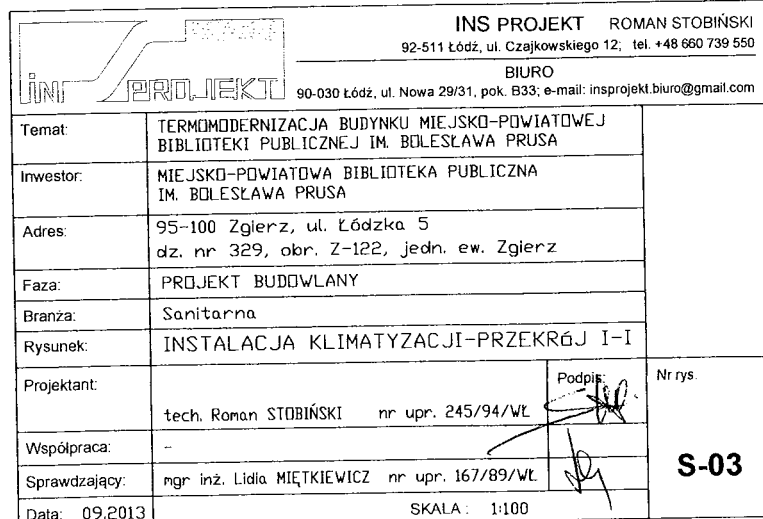 INS PROJEKT ROMAN STOBIŃSKI
92-511 Łódź, ul. Czajkowskiego 12; tel. +48 660 739 550
BIURO
90-030 Łódź, ul. Nowa 29/31, pok. B33; e-mail: insprojekt.biuro@gmail.com
INS PROJEKT
Temat: TERMOMODERNIZACJA BUDYNKU MIEJSKO-POWIATOWEJ
BIBLIOTEKI PUBLICZNEJ IM. BOLESŁAWA PRUSA
Inwestor: MIEJSKO-POWIATOWA BIBLIOTEKA PUBLICZNA
IM. BOLESŁAWA PRUSA
Adres: 95-100 Zgierz, ul. Łódzka 5
dz. nr 329, obr. Z-122, jedn. ew. Zgierz
Faza: PROJEKT BUDOWLANY
Branża: Sanitarna
Rysunek: INSTALACJA KLIMATYZACJI-PRZEKRóJ I-I
Projektant: Podpis: Nr rys.
tech. Roman STOBIŃSKI nr upr. 245/94/WŁ
Współpraca: -
Sprawdzający: mgr inż. Lidia MIĘTKIEWICZ nr upr. 167/89/WŁ
S-03
Data: 09.2013 SKALA: 1:100